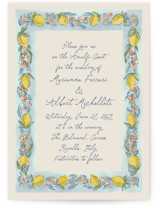 Please join us
on the Amalfi Coast
for the wedding of
Marianna Ferrari
& Albert Michelletti
Saturday, June 22, 2022
at 6 in the evening
The Belmond Caruso
Ravello, Italy
Festivities to follow